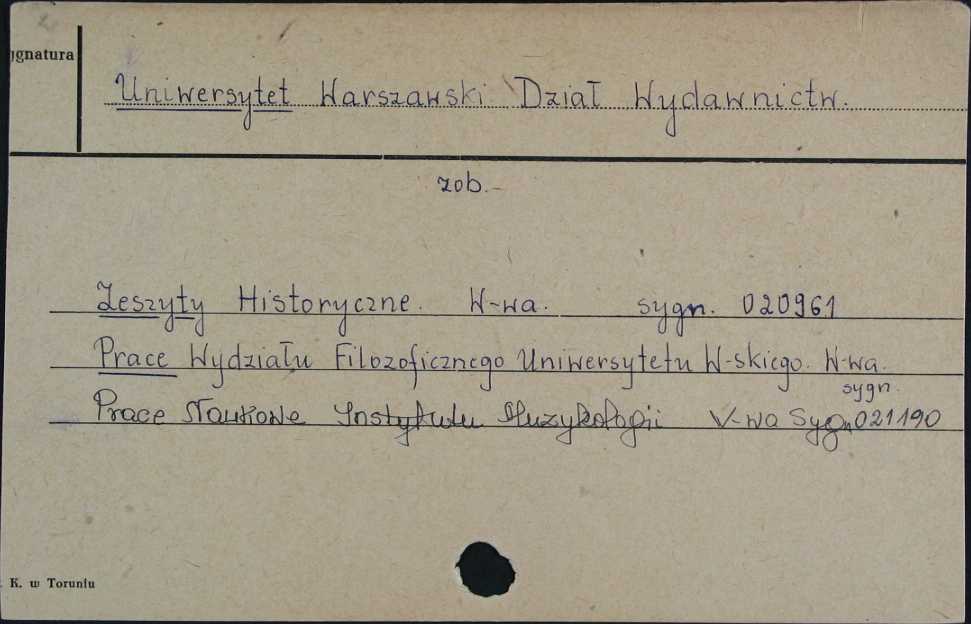 ygnatura
Uniwersytet Warszawski Dział Wydawnictw.
zob.-
Zeszyty Historyczne. W-wa. sygn. 020961
Prace Wydziału Filozoficznego Uniwersytetu W-skiego. W-wa.
sygn.
Prace Naukowe Instytutu Muzykologii W-wa Sygn 021190
K. w Toruniu